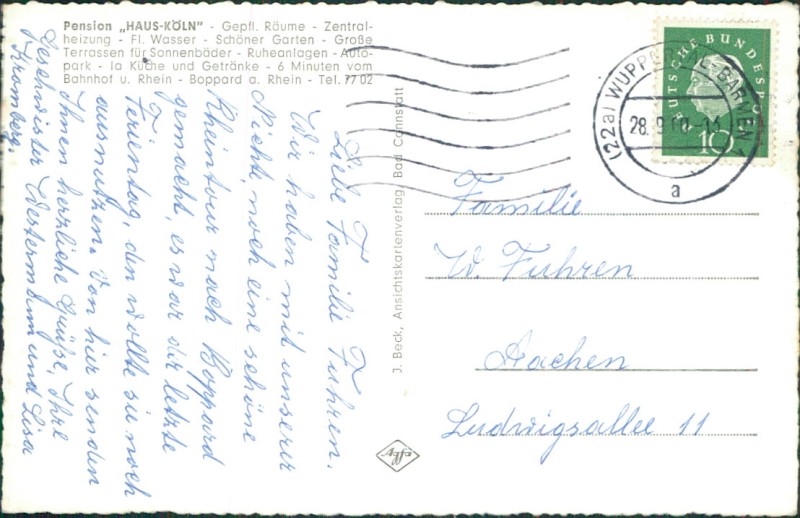 Pension „HAUS-KÖLN" - Gepfl. Räume - Zentral-
heizung - Fl. Wasser - Schöner Garten - Große
Terrassen für Sonnenbäder - Ruheanlagen - Auto-
park - Ia Küche und Getränke - 6 Minuten vom
Bahnhof u. Rhein - Boppard a. Rhein - Tel. 77 02
Liebe Familie Fuhren.
Wir haben mit unserer
Nicht, noch eine schöne
Rheintour nach Boppard
gemacht, es war der letzte
Ferientag, den wollte sie noch
ausnutzen. Von hier senden
Ihnen herzliche Grüße, Ihre
Geschwister Westermann und Lisa
Kromberg.
J. Beck, Ansichtskartenverlag, Bad Cannstatt
agfa
DEUTSCHE BUNDESPOST
10
(22a) WUPPERTAL-BARMEN
28.9.60
a
Familie
W. Fuhren
Aachen
Ludwigsallee 11